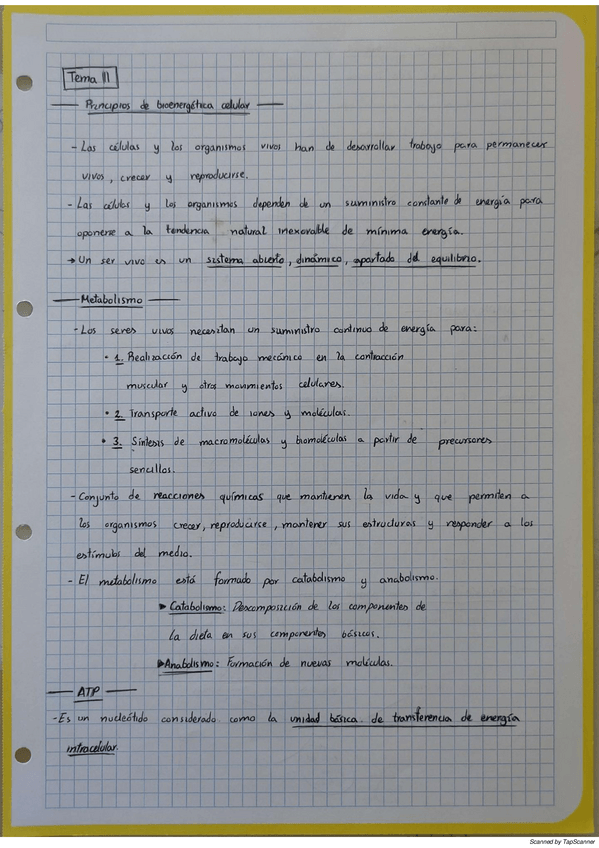 Tema 11
Principios de bioenergética celular
- Las células y los organismos vivos han de desarrollar trabajo para permanecer
vivos, crecer y reproducirse.
- Las células y los organismos dependen de un suministro constante de energía para
oponerse a la tendencia natural inexorable de mínima energía.
→ Un ser vivo es un sistema abierto, dinámico, apartado del equilibrio.
Metabolismo
- Los seres vivos necesitan un suministro continuo de energía para:
• 1. Realización de trabajo mecánico en la contracción
muscular y otros movimientos celulares.
• 2. Transporte activo de iones y moléculas.
• 3. Síntesis de macromoléculas y biomoléculas a partir de precursores
sencillos.
- Conjunto de reacciones químicas que mantienen la vida y que permiten a
los organismos crecer, reproducirse, mantener sus estructuras y responder a los
estímulos del medio.
- El metabolismo está formado por catabolismo y anabolismo.
➤ Catabolismo: Descomposición de los componentes de
la dieta en sus componentes básicos.
➤ Anabolismo: Formación de nuevas moléculas.
ATP
- Es un nucleótido considerado como la unidad básica de transferencia de energía
intracelular.
Scanned by TapScanner